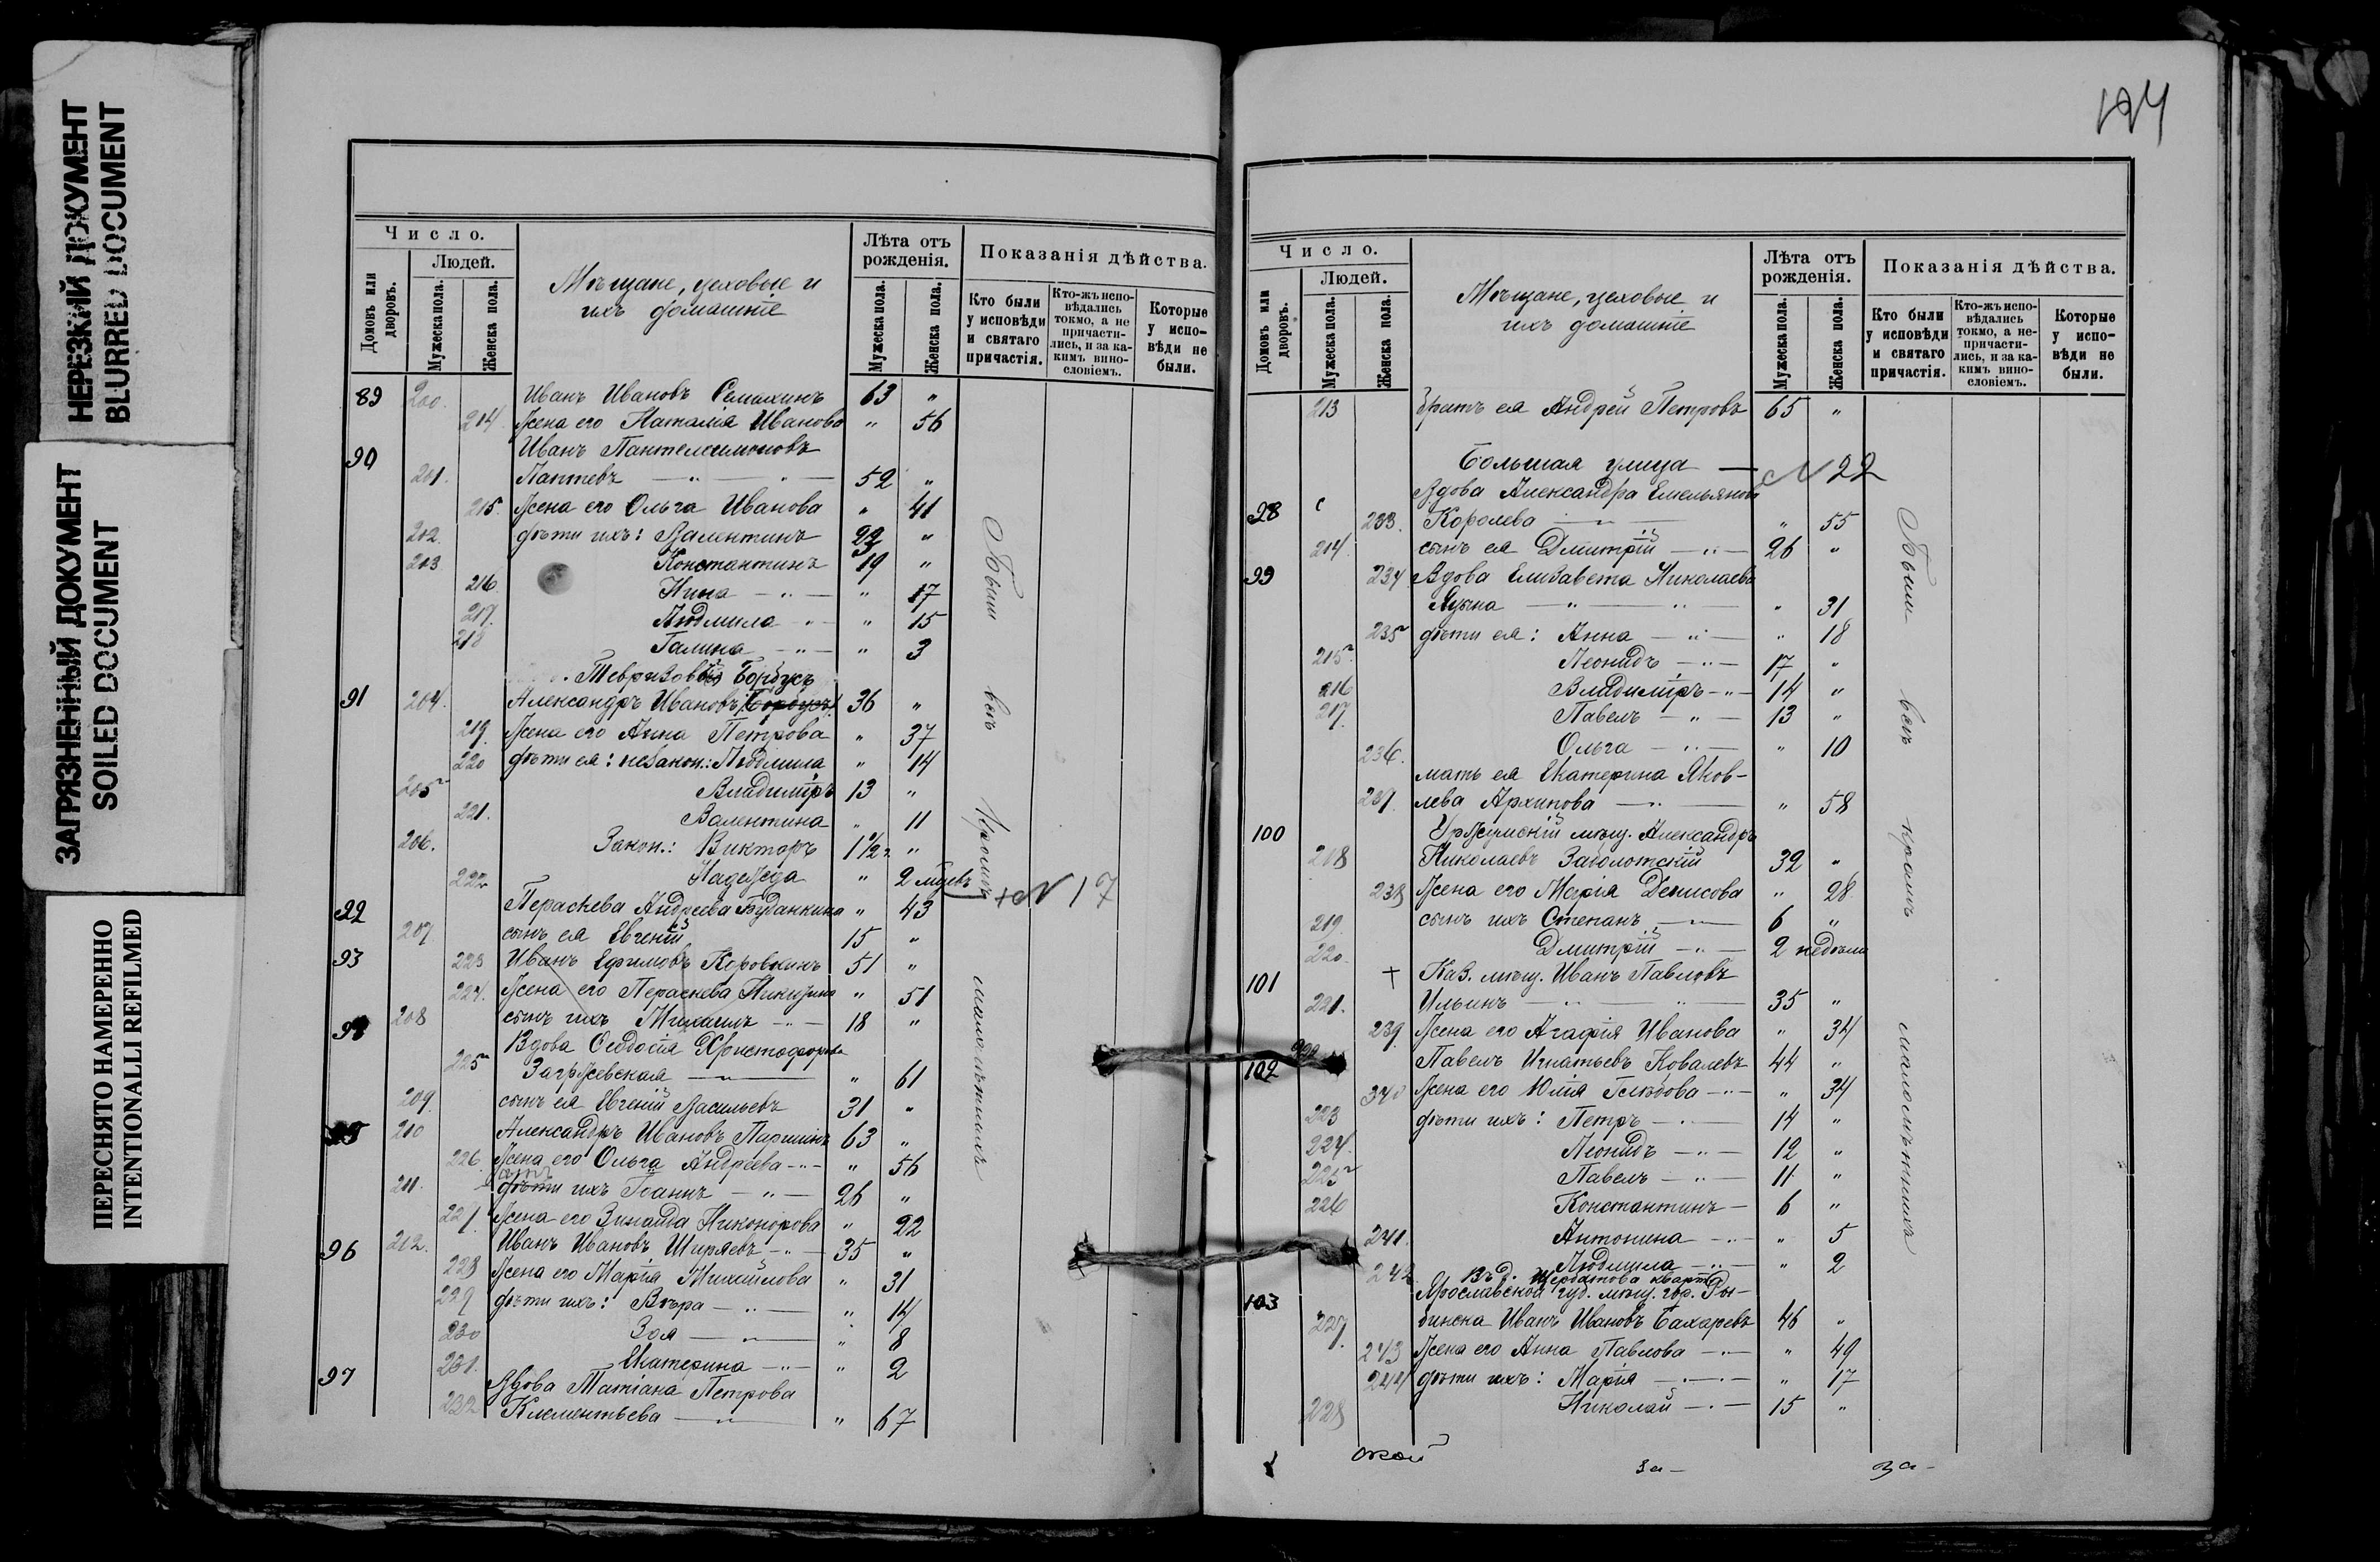 НЕРЕЗКИЙ ДОКУМЕНТ
BLURRED DOCUMENT
ЗАГРЯЗНЕННЫЙ ДОКУМЕНТ
SOILED DOCUMENT
ПЕРЕСНЯТО НАМЕРЕННО
INTENTIONALLI REFILMED
Число.
Домовъ или дворовъ.
Людей.
Мужеска пола.
Женска пола.
Мѣщане, цеховые и
ихъ домашніе
Лѣта отъ рожденія.
Мужеска пола.
Женска пола.
Показанія дѣйства.
Кто были у исповѣди и святаго причастія.
Кто-жъ исповѣдались токмо, а не причастились, и за какимъ винословіемъ.
Которые у исповѣди не были.
89 200. Иванъ Ивановъ Семихинъ 63 "
214 Жена его Наталія Иванова " 56
90 Иванъ Пантелеимоновъ
201. Лаптевъ — " — " — 52 "
215. Жена его Ольга Иванова " 41
202. дѣти ихъ: Валентинъ 22 "
203 Константинъ 19 "
216 Нина — " — " 17
217. Людмила — " — " 15
218 Галина — " — " 3
Тевризовъ Борбусъ
91 204. Александръ Ивановъ 36 "
219. Жена его Анна Петрова " 37
220 дѣти ея: незакон.: Людмила " 14
205 Владиміръ 13 "
221. Валентина " 11
206. Закон.: Викторъ 1 1/2 г "
222 Надежда " 2 мцевъ
+ N 17
92 Параскева Андреева Буданкина " 43
207 сынъ ея Евгеній 15 "
93 223 Иванъ Ефимовъ Коровкинъ 51 "
224. Жена его Параскева Никифорова " 51
208 сынъ ихъ Михаилъ — " — 18 "
94 Вдова Ѳеодосія Христофорова
225 Загржевская — " — " 61
209. сынъ ея Евгеній Васильевъ 31 "
95 210 Александръ Ивановъ Паршинъ 63 "
226. Жена его Ольга Андреева — " — " 56
211. дѣти ихъ Іоаннъ — " — 26 "
227. Жена его Зинаида Никонорова " 22
96 212. Иванъ Ивановъ Ширяевъ — " — 35 "
228 Жена его Марія Михайлова " 31
229 дѣти ихъ: Вѣра — " — " 14
230 Зоя — " — " 8
231. Екатерина — " — " 2
97 Вдова Татіана Петрова
232 Клементьева — " — " 67
Были всѣ кромѣ малолѣтнихъ
Число.
Домовъ или дворовъ.
Людей.
Мужеска пола.
Женска пола.
Мѣщане, цеховые и
ихъ домашніе
Лѣта отъ рожденія.
Мужеска пола.
Женска пола.
Показанія дѣйства.
Кто были у исповѣди и святаго причастія.
Кто-жъ исповѣдались токмо, а не-причастились, и за какимъ винословіемъ.
Которые у исповѣди не были.
213 Братъ ея Андрей Петровъ 65 "
Большая улица — N 22
Вдова Александра Емельянова
98 233. Королева — " — " 55
214. сынъ ея Дмитрій — " — 26 "
99 234 Вдова Елизавета Николаева
— " — " — " 31
235 дѣти ея: Анна — " — " 18
215. Леонидъ — " — 17 "
216 Владиміръ — " — 14 "
217. Павелъ — " — 13 "
236. Ольга — " — " 10
мать ея Екатерина Яков-
237. лева Архипова — " — " 58
100 Уржумскій мѣщ. Александръ
218 Николаевъ Заболотскій 32 "
238 Жена его Марія Денисова " 28
219. сынъ ихъ Степанъ — " — 6 "
220. Дмитрій — " — 2 недѣли
101 + Каз. мѣщ. Иванъ Павловъ
221. Ильинъ — " — " — 35 "
239. Жена его Агафія Иванова " 34
102 222 Павелъ Игнатьевъ Ковалевъ 44 "
340 Жена его Юлія Глѣбова — " — " 34
223 дѣти ихъ: Петръ — " — 14 "
224. Леонидъ — " — 12 "
225 Павелъ — " — 11 "
226 Константинъ — 6 "
241. Антонина — " — " 5
242. Людмила — " — " 2
Въ д. Щербакова кварт.
103 Ярославской губ. мѣщ. гор. Ры-
227. бинска Иванъ Ивановъ Бахаревъ 46 "
243 Жена его Анна Павлова — " — " 49
244 дѣти ихъ: Марія — " — " 17
228 Николай — " — 15 "
Были всѣ кромѣ малолѣтнихъ
ской за- за-